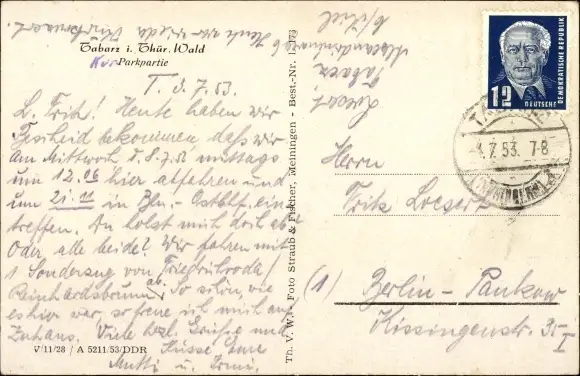 Tabarz i. Thür. Wald
Kur-Parkpartie
T. 3.7.53.
L. Fritz! Heute haben wir
Bescheid bekommen, daß wir
am Mittwoch d. 8.7.53 mittags
um 12.06 hier abfahren und
um 21.11 in Bln.- Ostbhf. ein-
treffen. Du holst mich doch ab?
Oder alle beide? Wir fahren mit
1 Sonderzug von Friedrichroda/
Reinhardsbrunn ab. So schön, wie
es hier war, so freue ich mich auf
Zuhaus. Viele herzl. Grüße und
Küsse Eure
Mutti u.
V 11/28 / A 5211/53/DDR
Th. V. W. - Foto Straub & Fischer, Meiningen - Best.-Nr.
12
DEUTSCHE
DEMOKRATISCHE REPUBLIK
TABARZ
.7.53. 7-8
(THÜRINGERWALD)
Tabarz
Herrn
Fritz Loesert
(1) Berlin - Pankow
Kissingenstr. 35
I